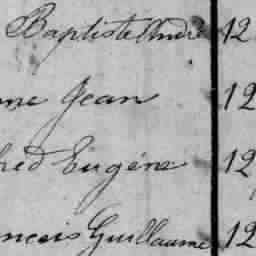 Baptiste André 12
nne Jean 12
hed Eugène 12
ncois Guillaume 12